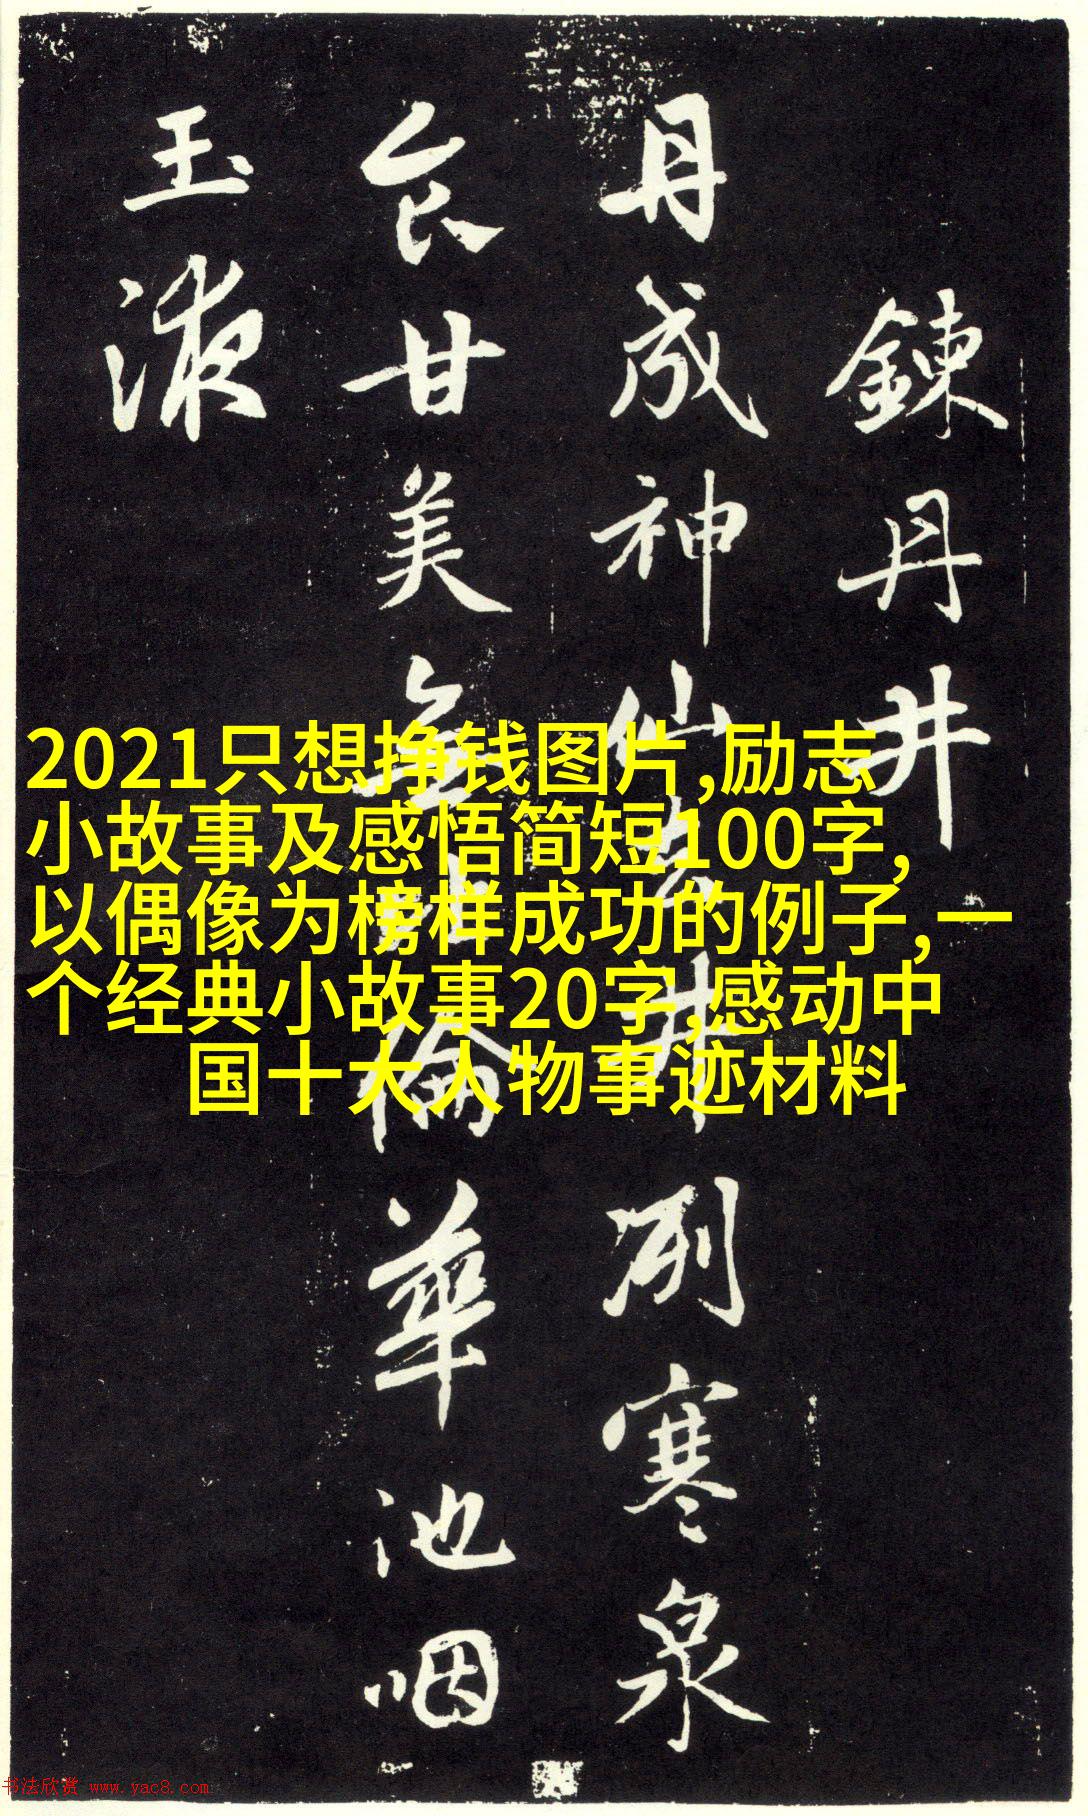 鍊丹井
丹成神仙去井冽寒泉
食甘美無比倫華池咽
玉液
2021只想挣钱图片,励志
小故事及感悟简短100字,
以偶像为榜样成功的例子,一
个经典小故事20字,感动中
国十大人物事迹材料
书法欣赏 www.yac8.com